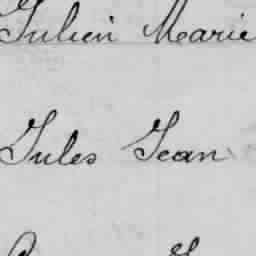 Julien Marie
Jules Jean